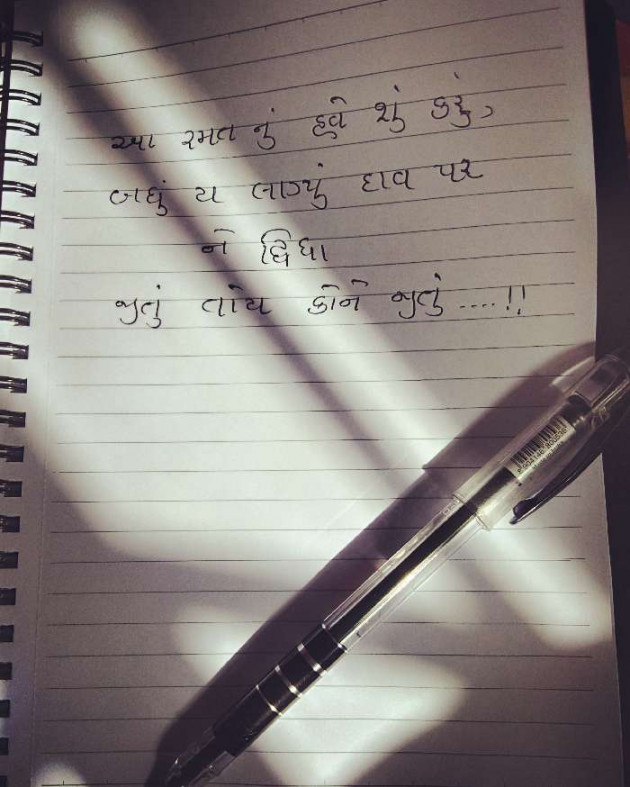 આ રમત નું હવે શું કરું,
બધું ય લાગ્યું દાવ પર
ને દ્વિધા
જીતું તોય કોને જીતું ....!!